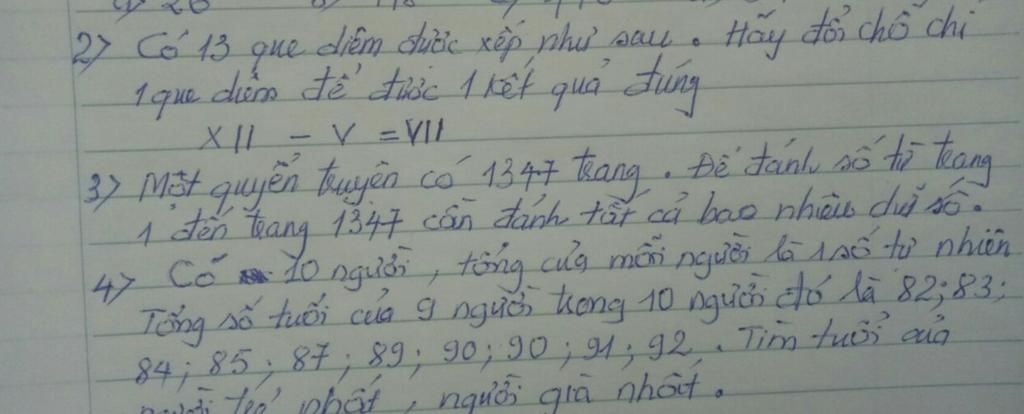 2) Có 13 que diêm được xếp như sau. Hãy đổi chỗ chỉ
1 que diêm để được 1 kết quả đúng
XII - V = VII
3) Một quyển truyện có 1347 trang. Để đánh số từ trang
1 đến trang 1347 cần đánh tất cả bao nhiêu chữ số.
4) Có 10 người, tổng của mỗi người là 1 số tự nhiên
Tổng số tuổi của 9 người trong 10 người đó là 82; 83;
84; 85; 87; 89; 90; 90; 91; 92. Tìm tuổi của
người trẻ nhất, người già nhất.